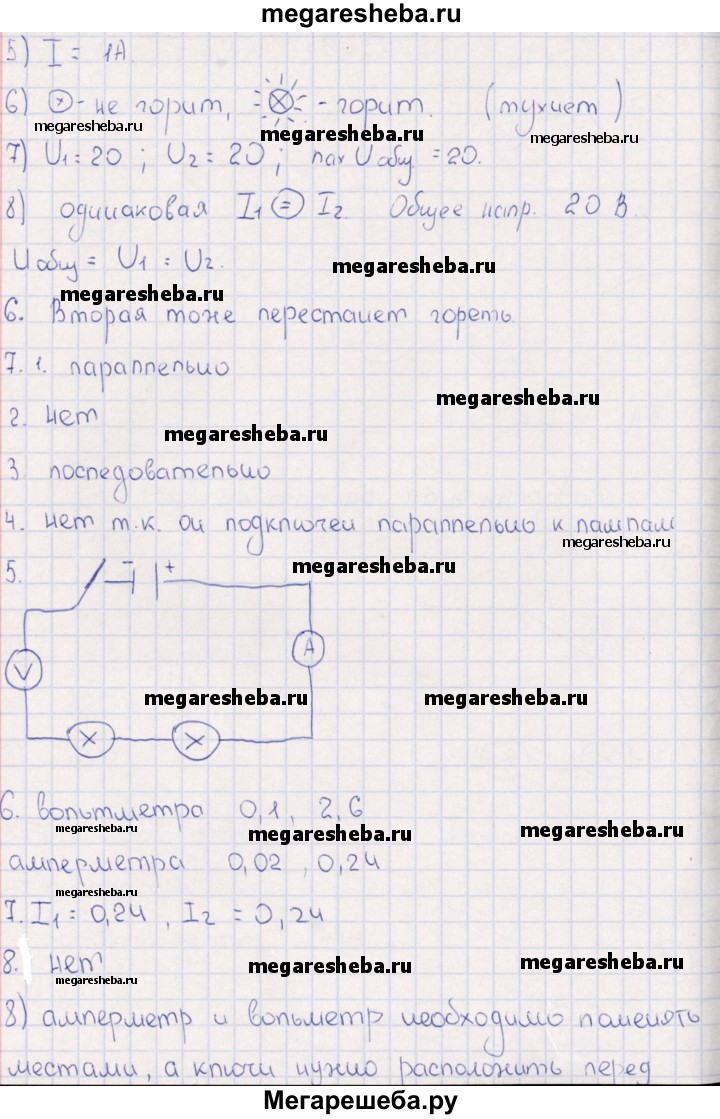 megaresheba.ru
5) I = 1A.
6) ⊗ - не горит, ⊗ - горит. (тухнет)
megaresheba.ru megaresheba.ru megaresheba.ru
7) U1 = 20 ; U2 = 20 ; Uобщ = 20.
8) одинаковая I1 = I2. Общее напр. 20 В.
Uобщ = U1 = U2.
megaresheba.ru
megaresheba.ru
6. Вторая тоже перестанет гореть
7. 1. параллельно
megaresheba.ru
2. нет
megaresheba.ru
3. последовательно
4. нет т.к. он подключен параллельно к лампам
megaresheba.ru
megaresheba.ru
5. - +
A
V
megaresheba.ru megaresheba.ru
X X
6. вольтметра 0,1, 2,6
megaresheba.ru megaresheba.ru megaresheba.ru
амперметра 0,02, 0,24
megaresheba.ru
7. I1 = 0,24, I2 = 0,24
8. нет
megaresheba.ru megaresheba.ru megaresheba.ru
8) амперметр и вольметр необходимо паменять
местами, а ключи нужно расположить перед
Мегарешеба.ру